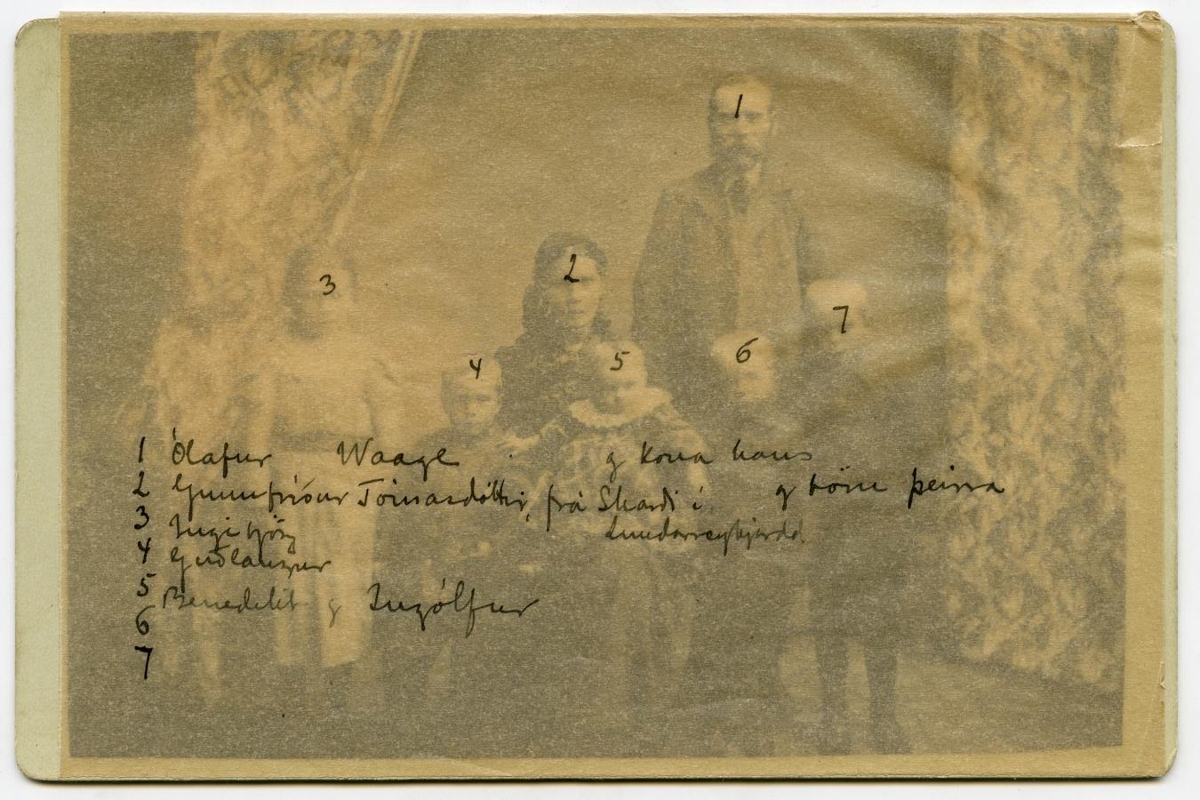 1
2
3
7
6
5
4
1 Ólafur Waage og kona hans
2 Gunnfríður Tómasdóttir, frá Skarði í og börn þeirra
Lundarreykjadal
3 Ingibjörg
4 Guðlaugur
5 Benedikt og Ingólfur
6
7